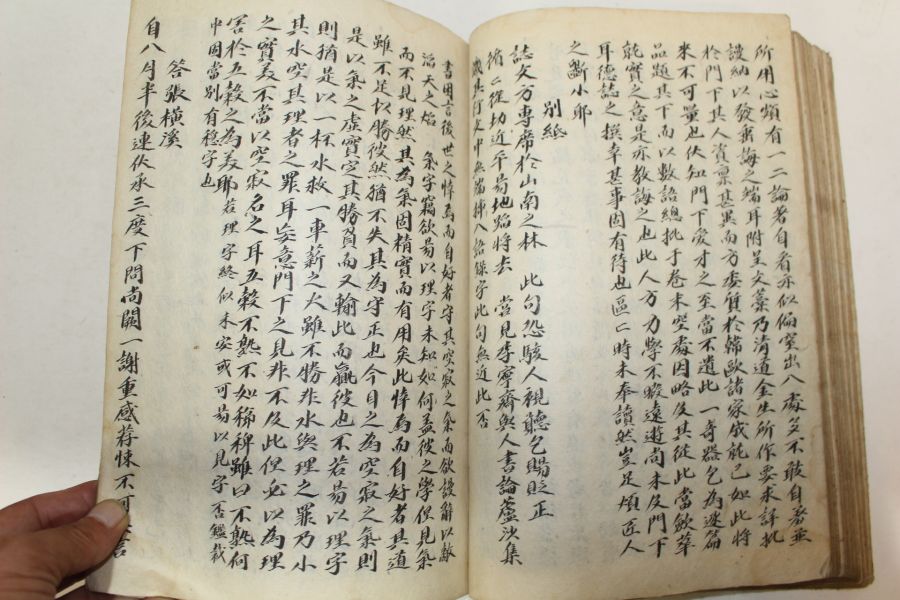 所用心頗有一二論者自看亦似偏窒出入處多不敢自著並
謾納以發蒙誨之端耳附呈文藁乃清道金生所作要求評批
於門下其人資稟甚異而方委質於韓歐諸家成能已如此將
來不可量也伏知門下愛才之至當不遺此一奇器乞為逐篇
品題其下而以數語總批于卷末空處因略及其從此當斂華
就實之意是亦教誨之也此人方力學不暇遠遊尚未及門下
耳德誌之撰幸甚事固有待也區二時未奉讀然豈足煩匠人
之斲小耶
別紙
誌文方專席於山南之林 此句恐駭人視聽乞賜貶正
循二從切近平易地焰將去 嘗見李寧齋與人書論蘆沙集
譏其行文中無端揷入語錄字此句無近此否
書因言後世之悻焉而自好者守其空寂之氣而欲設辭以敵
滔天之焰 氣字竊欲易以理字未知如何蓋彼之學但見氣
而不見理然其為氣固精實而有用矣此悻焉而自好者其道
雖不足以勝彼然猶不失其為守正也今目之為空寂之氣則
是以氣之虛實定其勝負而又輸此而贏彼也不若易以理字
則猶是以一杯水救一車薪之火雖不勝非水與理之罪乃小
其水空其理者之罪耳妄意門下之見非不及此但必以為理
之實美不當以空寂名之耳五穀不熟不如稊稗雖曰不熟何
害於五穀之為美耶若理字終似未安或可易以見字否鑑裁
中固當別有穩字也
答張橫溪
自八月半後連伏承三度下問尚闕一謝重感荐悚不可